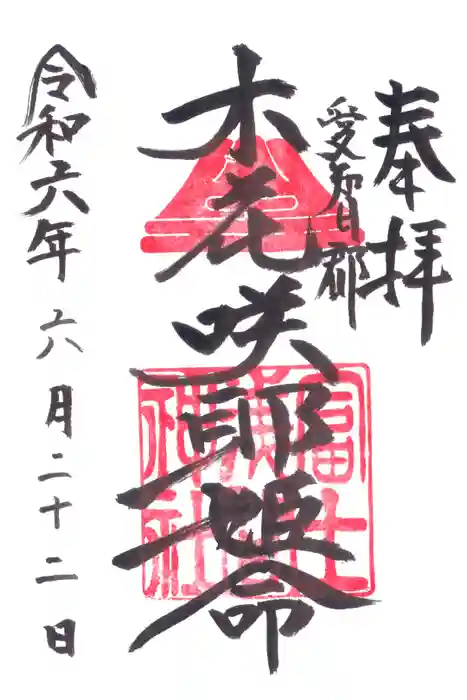 奉拝
愛知郡
木花咲耶姫命
富士浅間神社
令和六年 六月二十二日